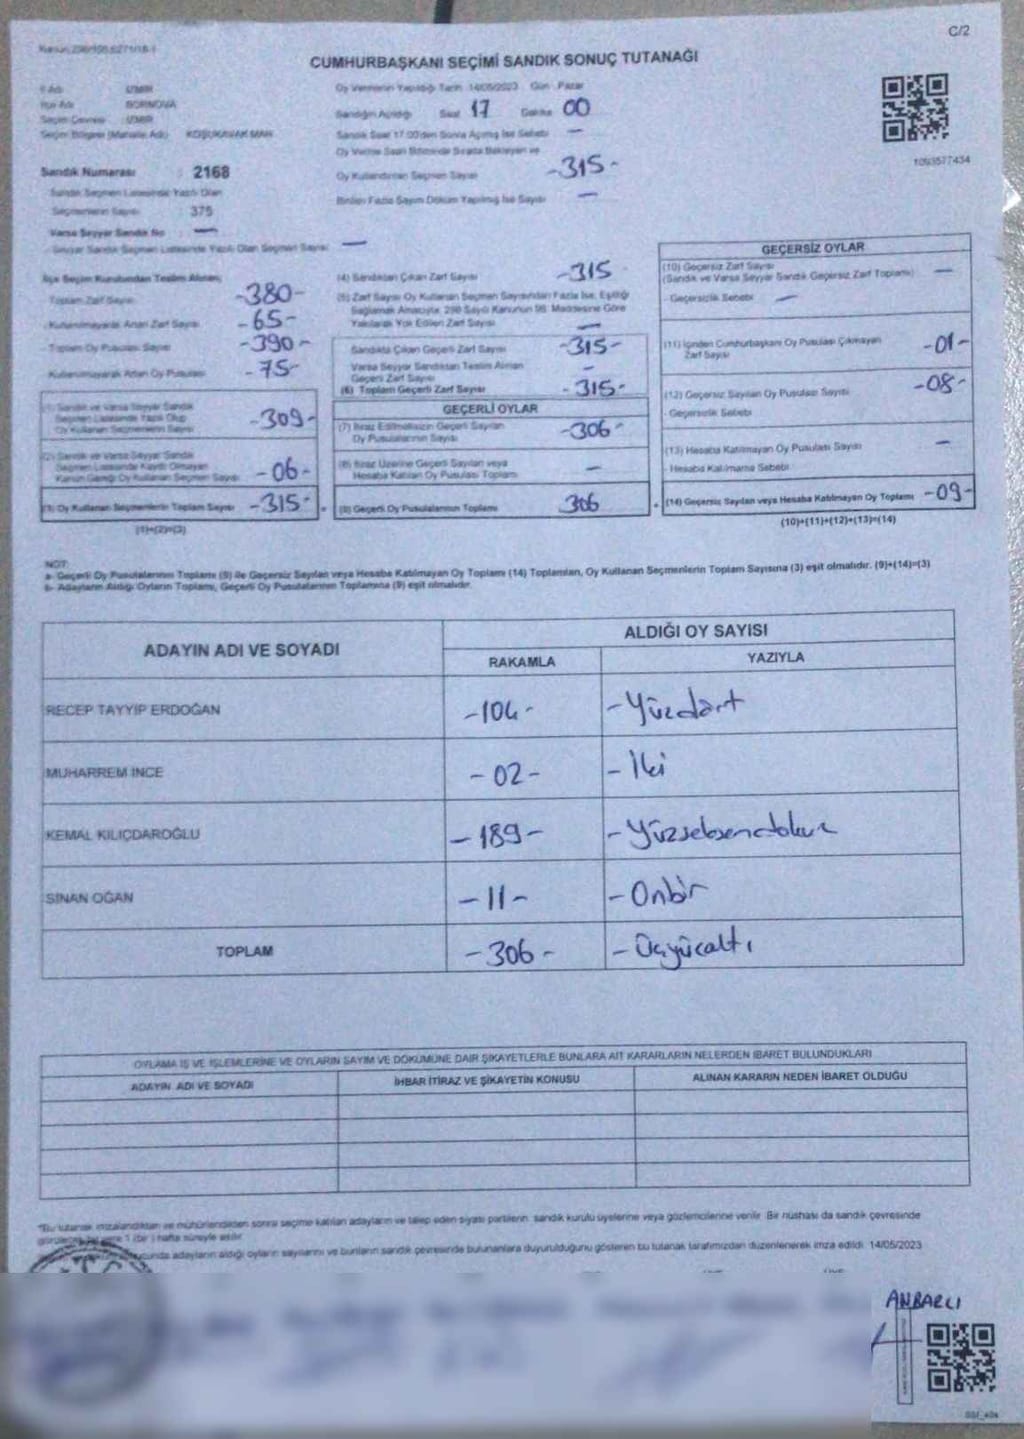 C/2
CUMHURBAŞKANI SEÇİMİ SANDIK SONUÇ TUTANAĞI
İli Adı : İZMİR
İlçe Adı : BORNOVA
Seçim Çevresi : İZMİR
Seçim Bölgesi (Mahalle Adı) : KOŞUKAVAK MAH.
Sandık Numarası : 2168
Sandık Seçmen Listesinde Yazılı Olan
Seçmenlerin Sayısı : 375
Varsa Seyyar Sandık No : —
Seyyar Sandık Seçmen Listesinde Yazılı Olan Seçmen Sayısı —
Oy Vermenin Yapıldığı Tarih: 14/05/2023 Gün: Pazar
Sandığın Açıldığı Saat 17 Dakika 00
Sandık Saat 17:00'den Sonra Açılmış İse Sebebi —
Oy Verme Saati Bitiminde Sırada Bekleyen ve
Oy Kullandırılan Seçmen Sayısı -315-
Birden Fazla Sayım Döküm Yapılmış İse Sayısı —
1093577434
İlçe Seçim Kurulundan Teslim Alınan;
Toplam Zarf Sayısı -380-
Kullanılmayarak Artan Zarf Sayısı -65-
Toplam Oy Pusulası Sayısı -390-
Kullanılmayarak Artan Oy Pusulası -75-
(1) Sandık ve Varsa Seyyar Sandık
Seçmen Listesinde Yazılı Olup
Oy Kullanan Seçmenlerin Sayısı -309-
(2) Sandık ve Varsa Seyyar Sandık
Seçmen Listesinde Kayıtlı Olmayan
Kanun Gereği Oy Kullanan Seçmen Sayısı -06-
(3) Oy Kullanan Seçmenlerin Toplam Sayısı -315-
(1)+(2)=(3)
(4) Sandıktan Çıkan Zarf Sayısı -315
(5) Zarf Sayısı Oy Kullanan Seçmen Sayısından Fazla İse, Eşitliği
Sağlamak Amacıyla, 298 Sayılı Kanunun 98. Maddesine Göre
Yakılarak Yok Edilen Zarf Sayısı —
Sandıkta Çıkan Geçerli Zarf Sayısı -315-
Varsa Seyyar Sandıktan Teslim Alınan
Geçerli Zarf Sayısı —
(6) Toplam Geçerli Zarf Sayısı -315-
GEÇERLİ OYLAR
(7) İtiraz Edilmeksizin Geçerli Sayılan
Oy Pusulalarının Sayısı -306-
(8) İtiraz Üzerine Geçerli Sayılan veya
Hesaba Katılan Oy Pusulası Toplamı —
(9) Geçerli Oy Pusulalarının Toplamı 306
GEÇERSİZ OYLAR
(10) Geçersiz Zarf Sayısı
(Sandık ve Varsa Seyyar Sandık Geçersiz Zarf Toplamı) —
Geçersizlik Sebebi —
(11) İçinden Cumhurbaşkanı Oy Pusulası Çıkmayan
Zarf Sayısı -01-
(12) Geçersiz Sayılan Oy Pusulası Sayısı -08-
Geçersizlik Sebebi
(13) Hesaba Katılmayan Oy Pusulası Sayısı —
Hesaba Katılmama Sebebi
(14) Geçersiz Sayılan veya Hesaba Katılmayan Oy Toplamı -09-
(10)+(11)+(12)+(13)=(14)
NOT:
a- Geçerli Oy Pusulalarının Toplamı (9) ile Geçersiz Sayılan veya Hesaba Katılmayan Oy Toplamı (14) Toplamları, Oy Kullanan Seçmenlerin Toplam Sayısına (3) eşit olmalıdır. (9)+(14)=(3)
b- Adayların Aldığı Oyların Toplamı, Geçerli Oy Pusulalarının Toplamına (9) eşit olmalıdır.
ADAYIN ADI VE SOYADI
ALDIĞI OY SAYISI
RAKAMLA YAZIYLA
RECEP TAYYİP ERDOĞAN -104- -Yüzdört
MUHARREM İNCE -02- -İki
KEMAL KILIÇDAROĞLU -189- -Yüzseksendokuz
SİNAN OĞAN -11- -Onbir
TOPLAM -306- -Üçyüzaltı
OYLAMA İŞ VE İŞLEMLERİNE VE OYLARIN SAYIM VE DÖKÜMÜNE DAİR ŞİKAYETLERLE BUNLARA AİT KARARLARIN NELERDEN İBARET BULUNDUKLARI
ADAYIN ADI VE SOYADI İHBAR İTİRAZ VE ŞİKAYETİN KONUSU ALINAN KARARIN NEDEN İBARET OLDUĞU
*Bu tutanak imzalandıktan ve mühürlendikten sonra seçime katılan adayların ve talep eden siyasi partilerin, sandık kurulu üyelerine veya gözlemcilerine verilir. Bir nüshası da sandık çevresinde
1 (bir) hafta süreyle asılır.
adayların aldığı oyların sayılarını ve bunların sandık çevresinde bulunanlara duyurulduğunu gösteren bu tutanak tarafımızdan düzenlenerek imza edildi. 14/05/2023
ANBARLI